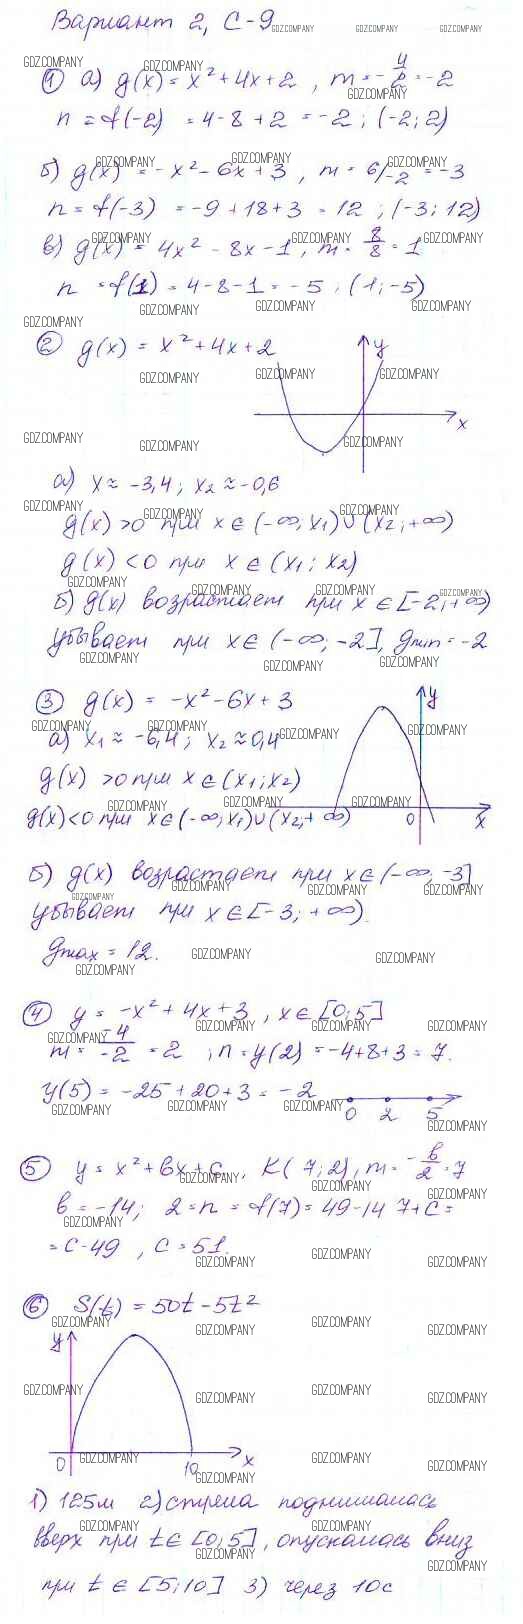 Вариант 2, С-9
GDZ.COMPANY GDZ.COMPANY GDZ.COMPANY
① а) g(x) = x² + 4x + 2 , m = -4/2 = -2
n = f(-2) = 4 - 8 + 2 = -2 ; (-2; 2)
б) g(x) = -x² - 6x + 3 , m = 6/-2 = -3
n = f(-3) = -9 + 18 + 3 = 12 ; (-3; 12)
в) g(x) = 4x² - 8x - 1 , m = 8/8 = 1
n = f(1) = 4 - 8 - 1 = -5 ; (1; -5)
② g(x) = x² + 4x + 2
y
x
а) x ≈ -3,4 ; x₂ ≈ -0,6
g(x) > 0 при x ∈ (-∞, x₁) ∪ (x₂; +∞)
g(x) < 0 при x ∈ (x₁; x₂)
б) g(x) возрастает при x ∈ [-2; +∞)
убывает при x ∈ (-∞; -2], gmin = -2
③ g(x) = -x² - 6x + 3
y
а) x₁ ≈ -6,4 ; x₂ ≈ 0,4
g(x) > 0 при x ∈ (x₁; x₂)
g(x) < 0 при x ∈ (-∞; x₁) ∪ (x₂; +∞)
0 x
б) g(x) возрастает при x ∈ (-∞; -3]
убывает при x ∈ [-3; +∞)
gmax = 12.
④ y = -x² + 4x + 3 , x ∈ [0; 5]
m = -4/-2 = 2 ; n = y(2) = -4 + 8 + 3 = 7.
y(5) = -25 + 20 + 3 = -2
0 2 5
⑤ y = x² + bx + c , K(7; 2), m = -b/2 = 7
b = -14; 2 = n = f(7) = 49 - 14 7 + c =
= c - 49 , c = 51.
⑥ S(t) = 50t - 5t²
y
0 10 x
1) 125м 2) стрела поднималась
вверх при t ∈ [0; 5], опускалась вниз
при t ∈ [5; 10] 3) через 10с